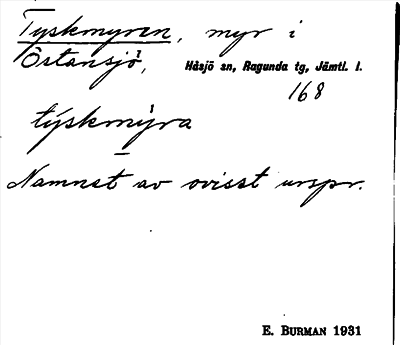 Tyskmyren, myr i
Östansjö, Håsjö sn, Ragunda tg, Jämtl. l.
168
týskmýra
Namnet av ovisst urspr.
E. BURMAN 1931